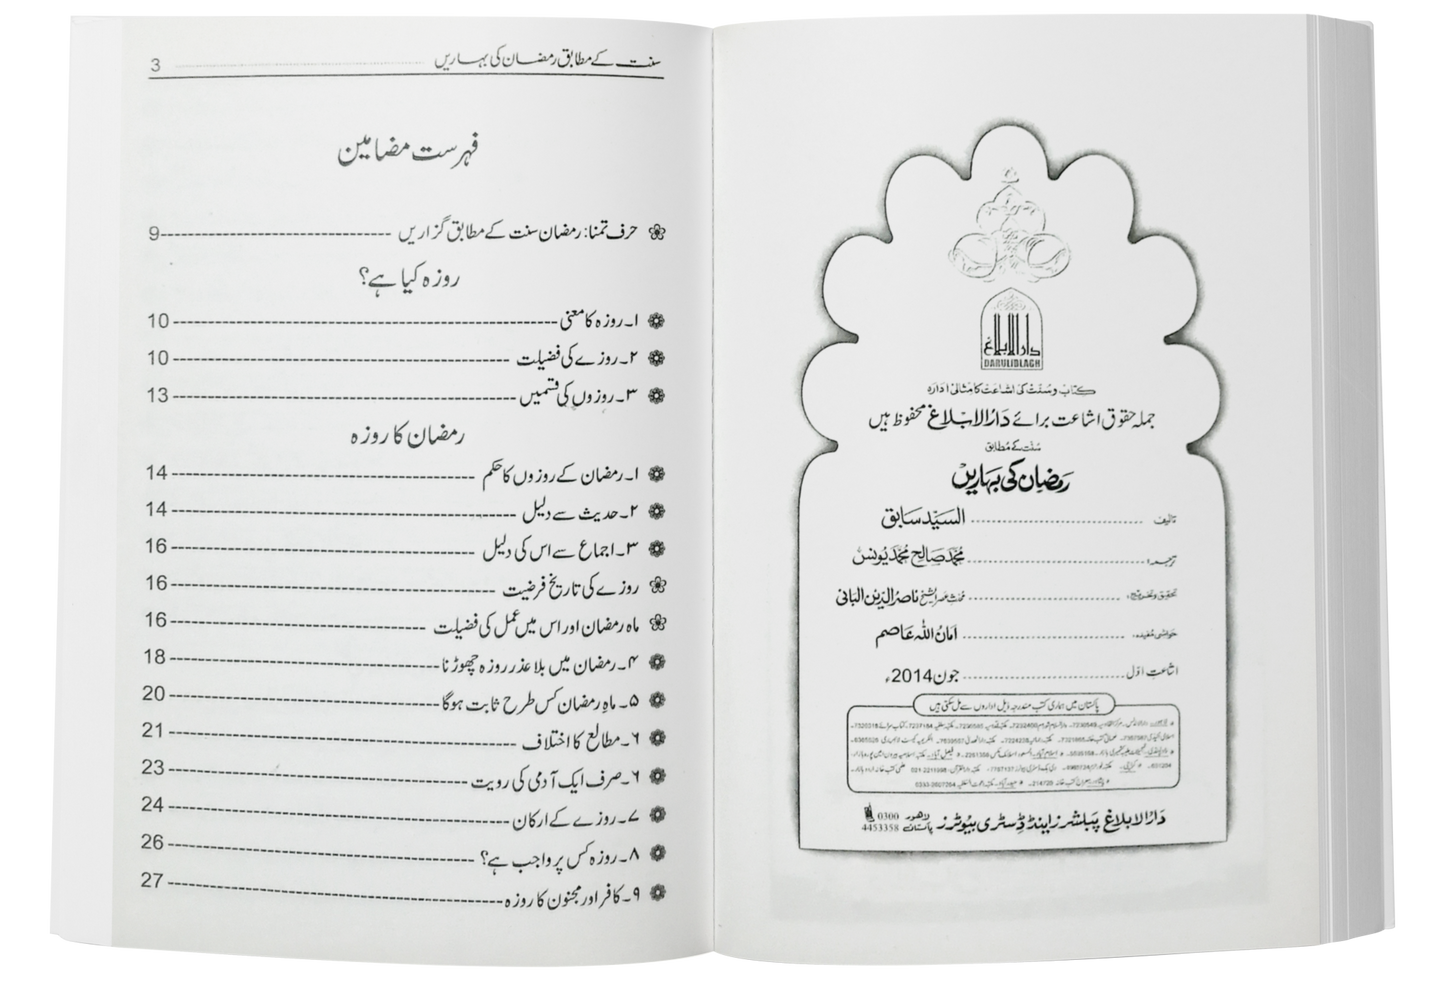 جملہ حقوق اشاعت برائے دارالابلاغ محفوظ ہیں
دارالابلاغ
DARULIBLAGH
کتاب و سنت کی اشاعت کا مثالی ادارہ
سنت کے مطابق
رمضان کی بہاریں
تالیف ........ السید سابق
ترجمہ: ........ محمد صالح محمد یونس
تحقیق و تخریج: ........ محدث عصر الشیخ ناصر الدین البانی
حواشی مفیدہ: ........ امان اللہ عاصم
اشاعت اول ........ جون 2014ء
پاکستان میں ہماری کتب مندرجہ ذیل اداروں سے مل سکتی ہیں
دارالابلاغ پبلشرز اینڈ ڈسٹری بیوٹرز لاہور پاکستان 0300 4453358
سنت کے مطابق رمضان کی بہاریں ........ 3
فہرست مضامین
حرف تمنا: رمضان سنت کے مطابق گزاریں -------- 9
روزہ کیا ہے؟
۱۔ روزہ کا معنی -------- 10
۲۔ روزے کی فضیلت -------- 10
۳۔ روزوں کی قسمیں -------- 13
رمضان کا روزہ
۱۔ رمضان کے روزوں کا حکم -------- 14
۲۔ حدیث سے دلیل -------- 14
۳۔ اجماع سے اس کی دلیل -------- 16
روزے کی تاریخ فرضیت -------- 16
ماہ رمضان اور اس میں عمل کی فضیلت -------- 16
۴۔ رمضان میں بلا عذر روزہ چھوڑنا -------- 18
۵۔ ماہِ رمضان کس طرح ثابت ہوگا -------- 20
۶۔ مطالع کا اختلاف -------- 21
۶۔ صرف ایک آدمی کی رویت -------- 23
۷۔ روزے کے ارکان -------- 24
۸۔ روزہ کس پر واجب ہے؟ -------- 26
۹۔ کافر اور مجنون کا روزہ -------- 27